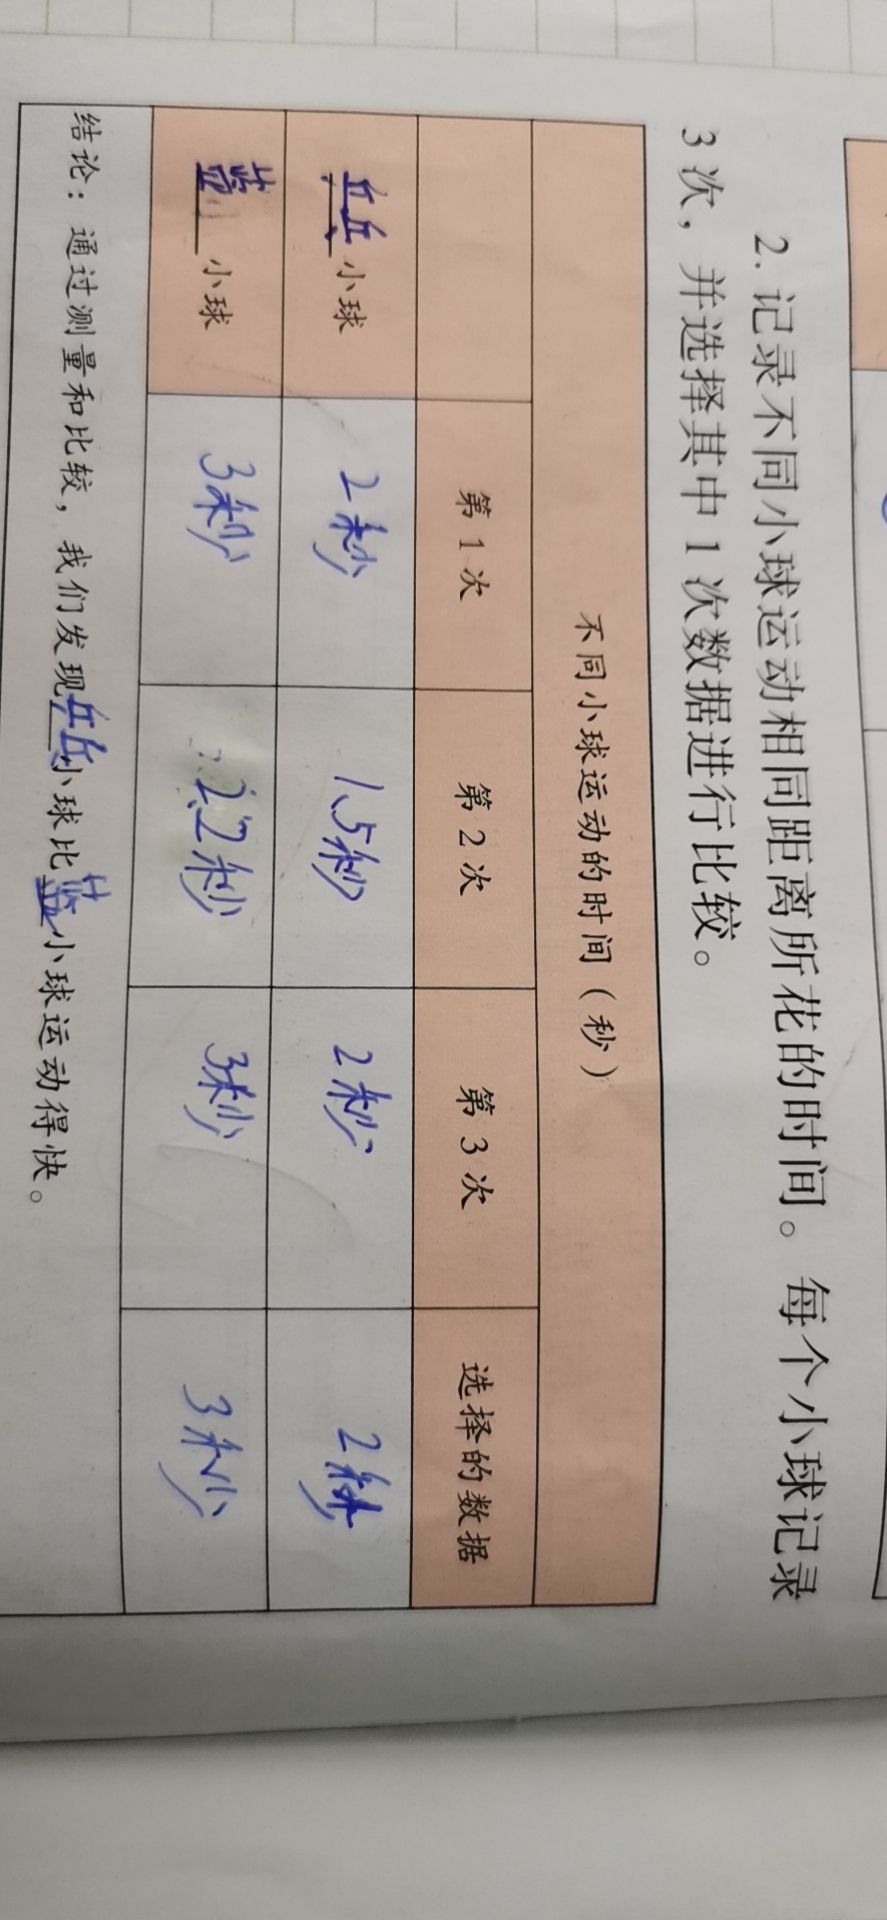 2. 记录不同小球运动相同距离所花的时间。每个小球记录
3 次，并选择其中 1 次数据进行比较。
不同小球运动的时间（秒）
第 1 次 第 2 次 第 3 次 选择的数据
乒乓小球 2秒 1.5秒 2秒 2秒
蓝小球 3秒 2.2秒 3秒 3秒
结论：通过测量和比较，我们发现乒乓小球比蓝小球运动得快。